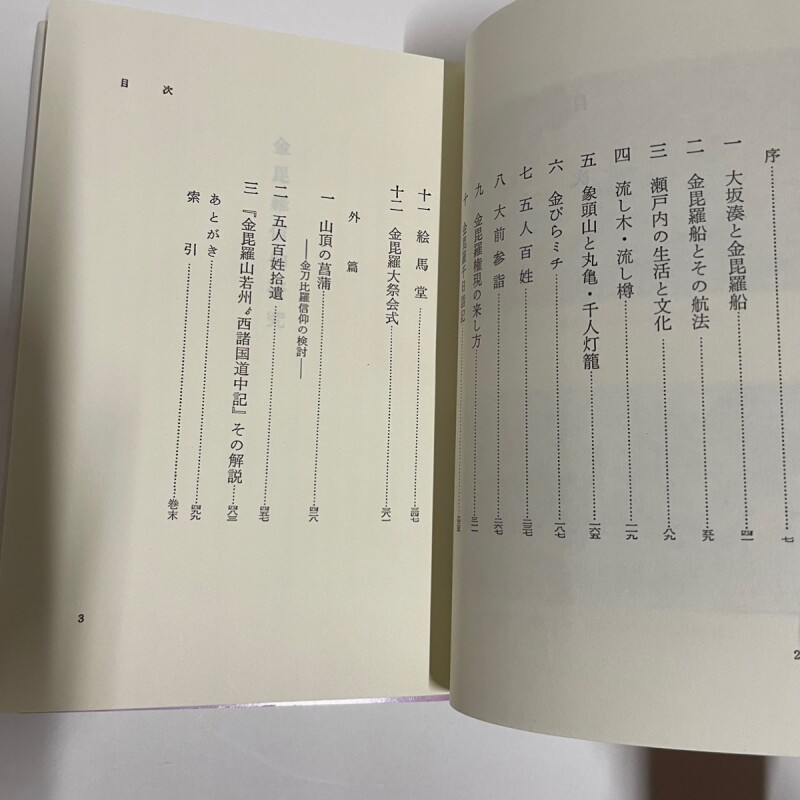 序……七
一 大坂湊と金毘羅船……四一
二 金毘羅船とその航法……五九
三 瀬戸内の生活と文化……八九
四 流し木・流し樽……一一九
五 象頭山と丸亀・千人灯籠……一六五
六 金びらミチ……一八七
七 五人百姓……二三七
八 大前参詣……二六七
九 金毘羅権現の来し方……三一一
十 金毘羅千日
2
目次
十一 絵馬堂……三四七
十二 金毘羅大祭会式……三八一
外篇
一 山頂の菖蒲……四一八
——金刀比羅信仰の検討——
二 五人百姓拾遺……四五七
三 『金毘羅山若州ゟ西諸国道中記』その解説……四八三
あとがき……四九九
索引……巻末
3